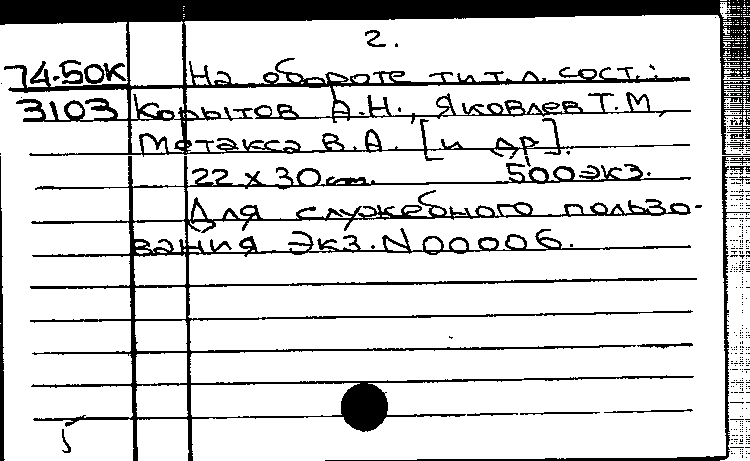 2.
74-50К На обороте тит.л. сост.:
3103 Корытов А.Н., Яковлев Т.М,
Метакса В.А. [и др].
22 x 30 cm. 500 экз.
Для служебного пользо-
вания Экз. N 00006.
5